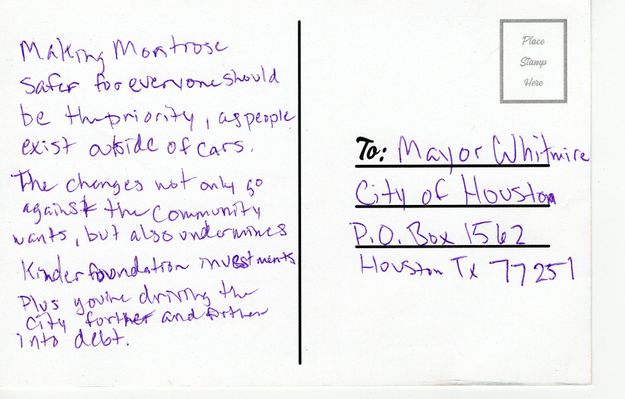 Making Montrose
safer for everyone should
be the priority, as people
exist outside of cars.
The changes not only go
against the community
wants, but also undermines
Kinder foundation investments
Plus you're driving the
city further and further
into debt.
Place
Stamp
Here
To: Mayor Whitmire
City of Houston
P.O. Box 1562
Houston Tx 77251